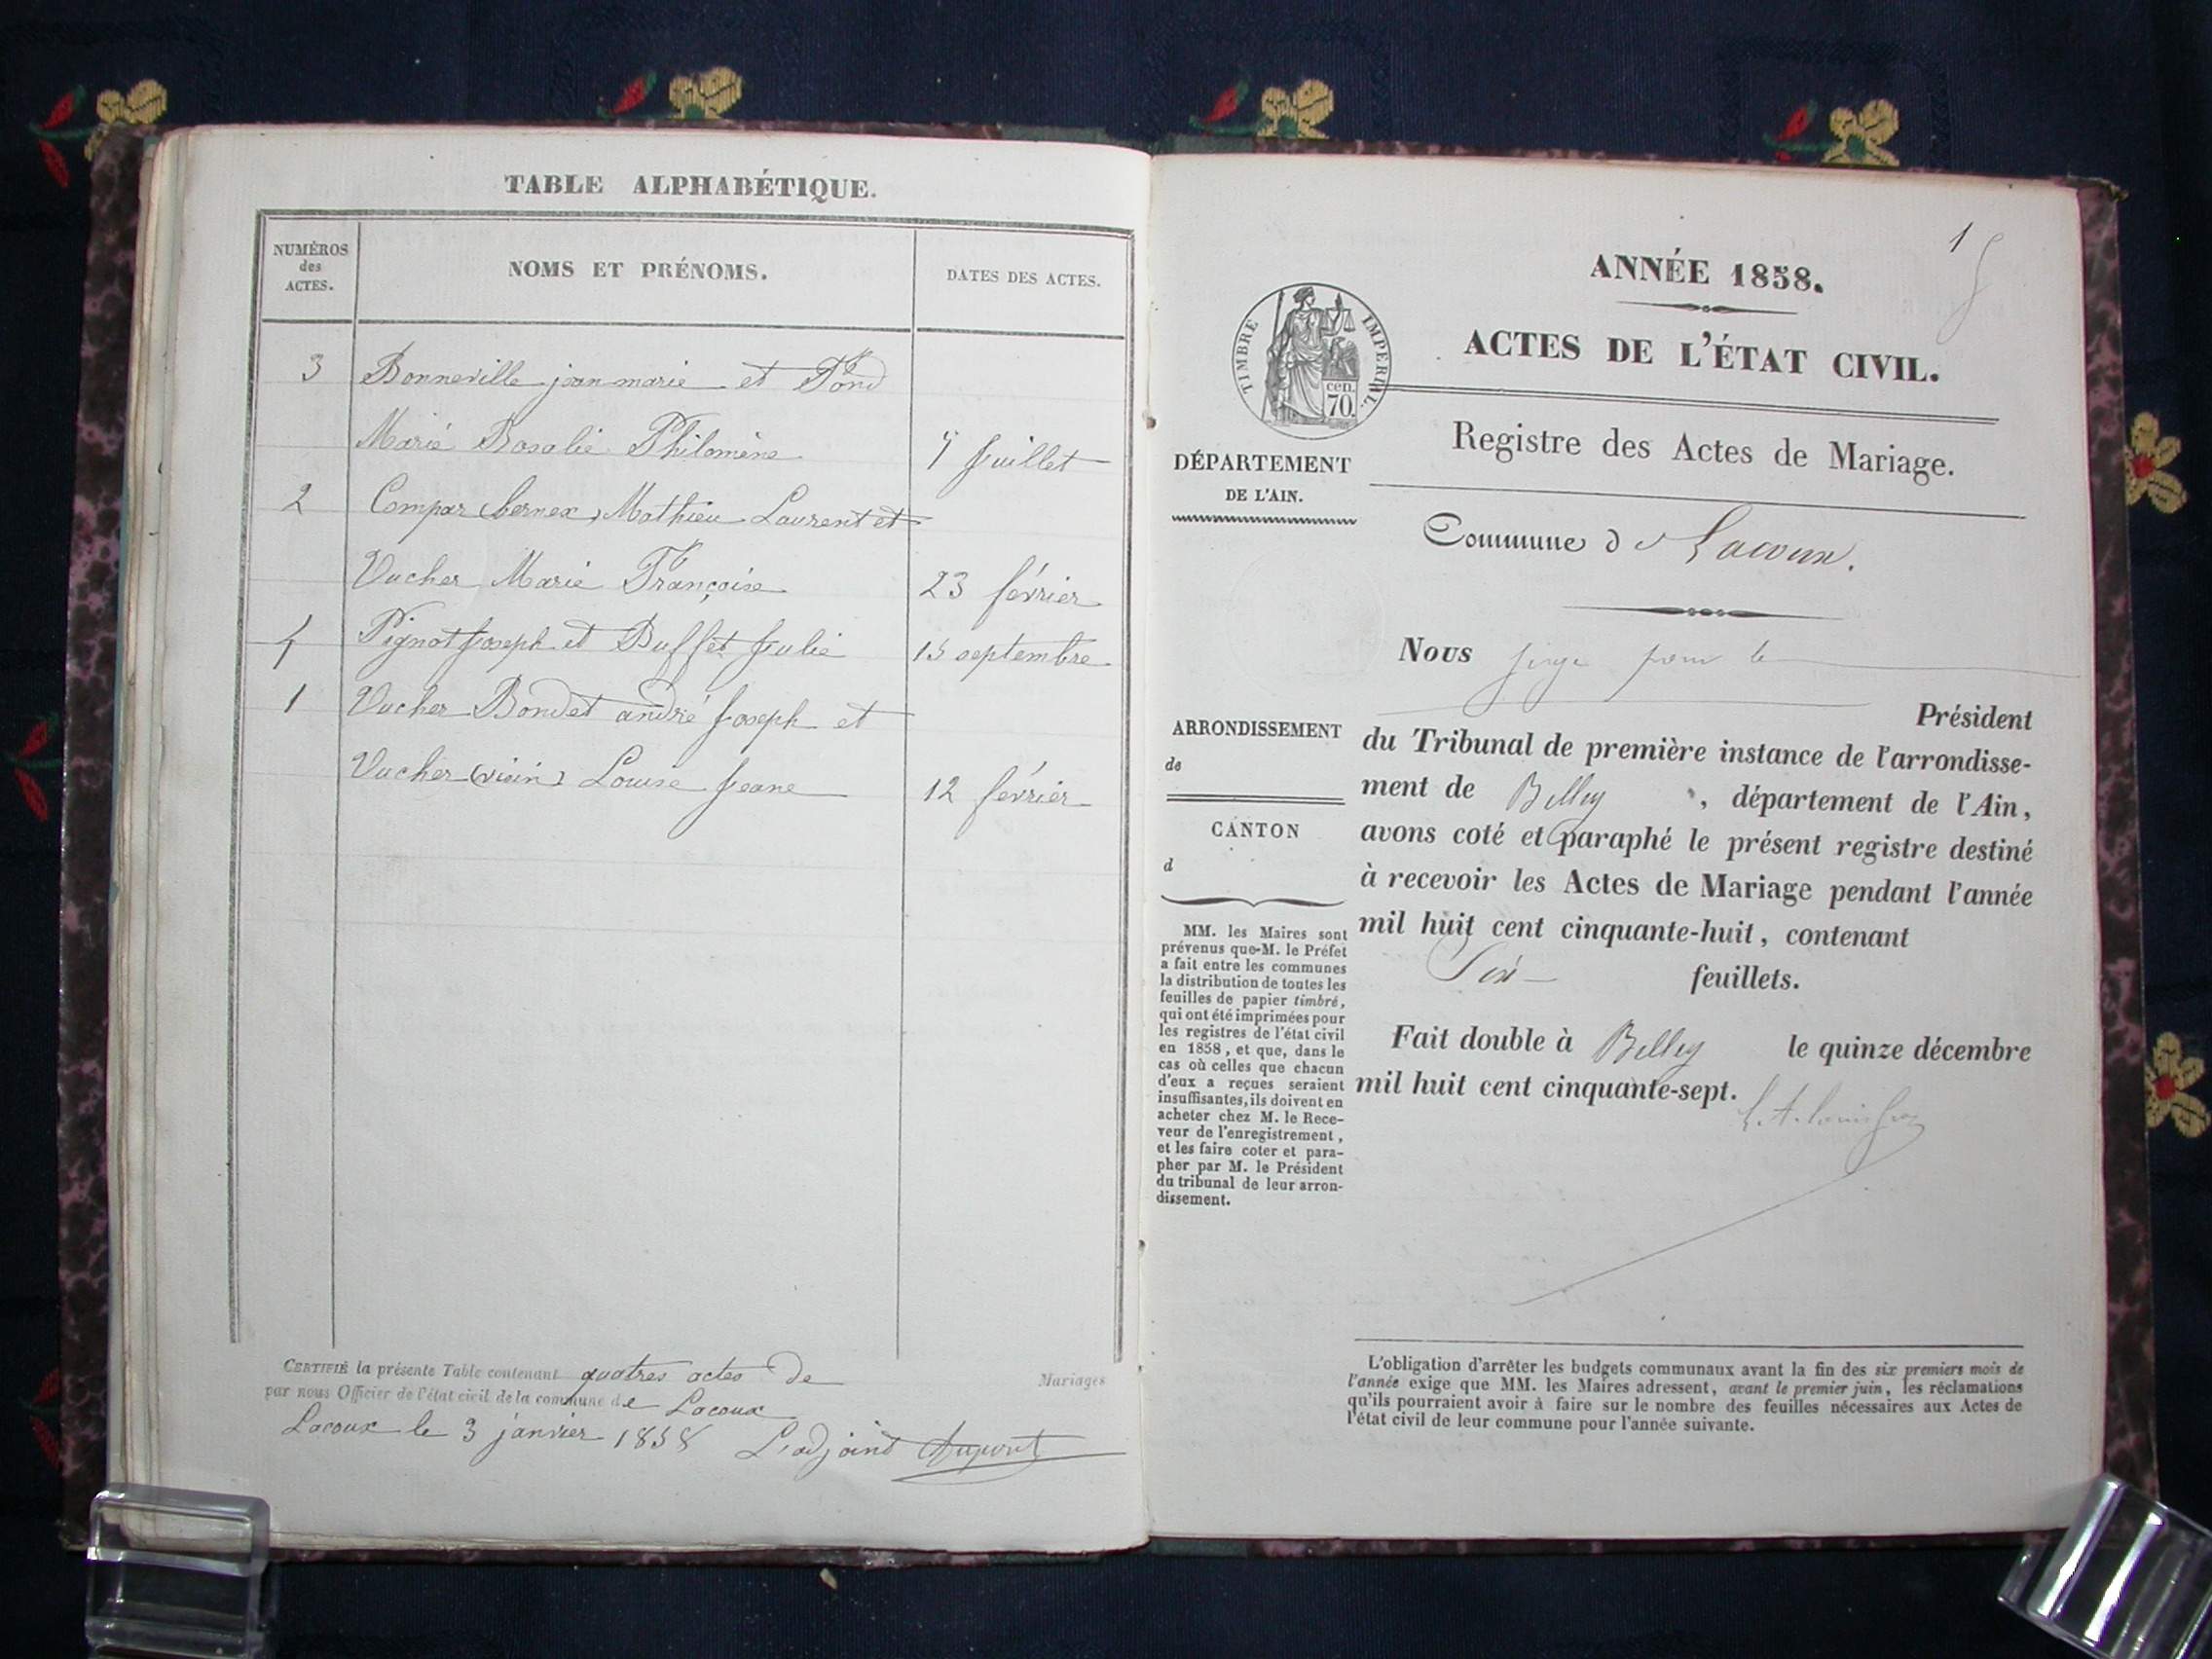 TABLE ALPHABÉTIQUE.
NUMÉROS
des
ACTES.
NOMS ET PRÉNOMS.
DATES DES ACTES.
3 Bonneville jean marie et Fond
Marié Rosalie Philomène juillet
2 Compar (bernex) Mathieu Laurent et
Vucher Marie Françoise 23 février
4 Pignot Joseph et Buffet Julie 15 septembre
1 Vucher Bondet andré Joseph et
Vucher Louise Jeane 12 février
CERTIFIÉ la présente Table contenant quatres actes de Mariages
par nous Officier de l'état civil de la commune de Lacoux
Lacoux le 3 janvier 1858 L'adjoint
1
ANNÉE 1858.
ACTES DE L'ÉTAT CIVIL.
TIMBRE IMPERIAL.
cen.
70.
Registre des Actes de Mariage.
DÉPARTEMENT
DE L'AIN.
Commune de Lacoux.
Nous juge pour le
Président
ARRONDISSEMENT
de
CANTON
d
du Tribunal de première instance de l'arrondisse-
ment de Belley, département de l'Ain,
avons coté et paraphé le présent registre destiné
à recevoir les Actes de Mariage pendant l'année
mil huit cent cinquante-huit, contenant
Six feuillets.
Fait double à Belley le quinze décembre
mil huit cent cinquante-sept.
MM. les Maires sont
prévenus que M. le Préfet
a fait entre les communes
la distribution de toutes les
feuilles de papier timbré,
qui ont été imprimées pour
les registres de l'état civil
en 1858, et que, dans le
cas où celles que chacun
d'eux a reçues seraient
insuffisantes, ils doivent en
acheter chez M. le Rece-
veur de l'enregistrement,
et les faire coter et para-
pher par M. le Président
du tribunal de leur arron-
dissement.
L'obligation d'arrêter les budgets communaux avant la fin des six premiers mois de
l'année exige que MM. les Maires adressent, avant le premier juin, les réclamations
qu'ils pourraient avoir à faire sur le nombre des feuilles nécessaires aux Actes de
l'état civil de leur commune pour l'année suivante.